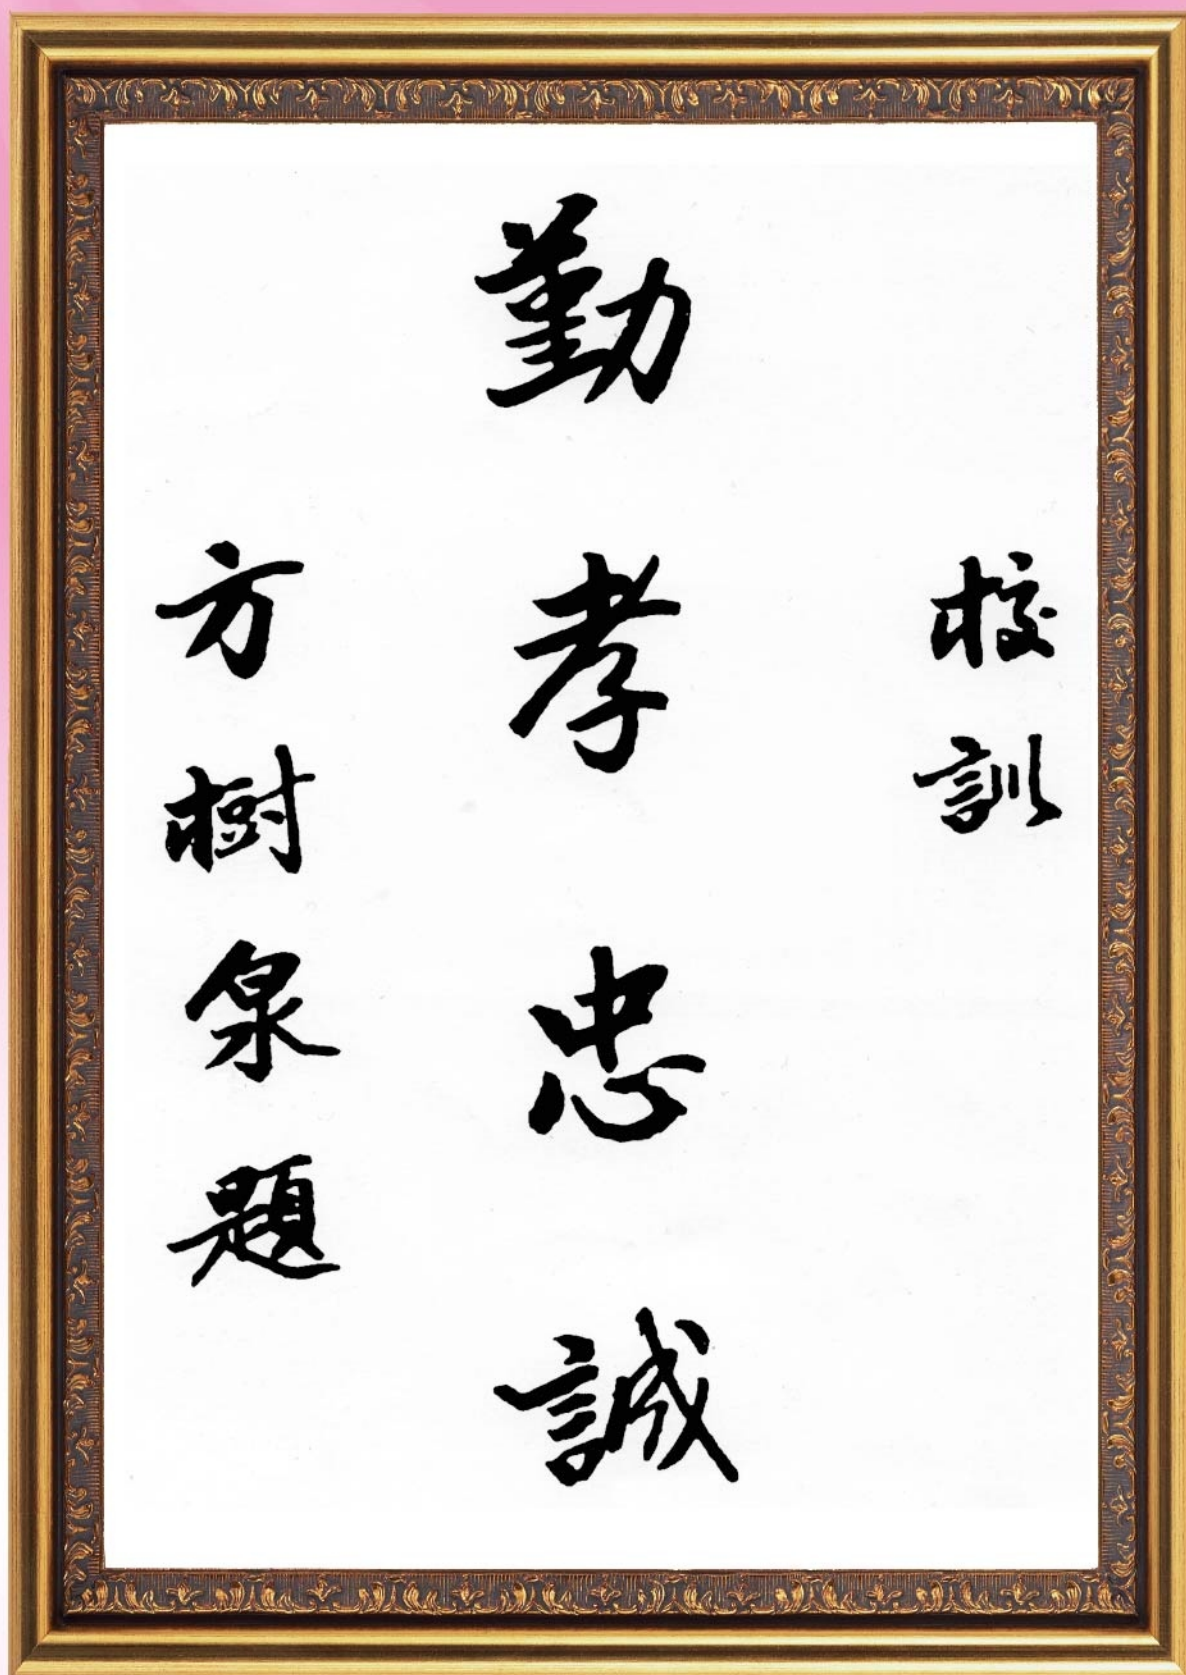 校訓
勤孝忠誠
方樹泉題